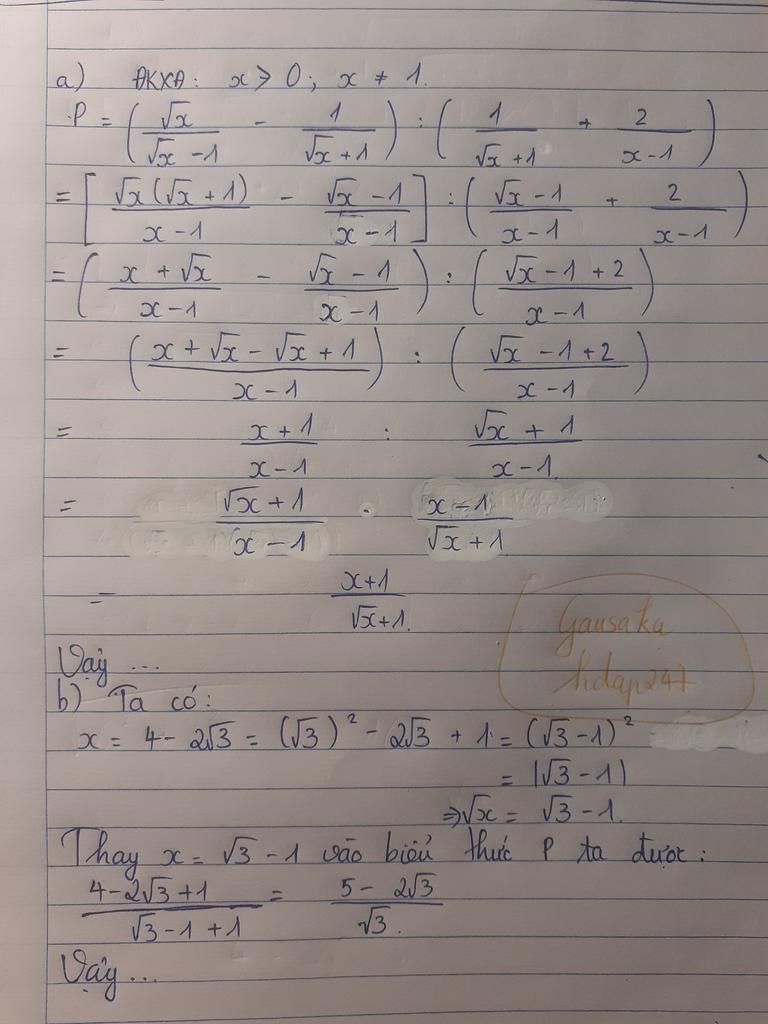 a) ĐKXĐ: x ⩾ 0; x ≠ 1.
P = (√x/(√x - 1) - 1/(√x + 1)) : (1/(√x + 1) + 2/(x - 1))
= [√x(√x + 1)/(x - 1) - (√x - 1)/(x - 1)] : ((√x - 1)/(x - 1) + 2/(x - 1))
= ((x + √x)/(x - 1) - (√x - 1)/(x - 1)) : ((√x - 1 + 2)/(x - 1))
= ((x + √x - √x + 1)/(x - 1)) : ((√x - 1 + 2)/(x - 1))
= (x + 1)/(x - 1) : (√x + 1)/(x - 1).
= (√x + 1)/(x - 1) . (x - 1)/(√x + 1)
= (x + 1)/(√x + 1).
Gausaka
hdap247
Vậy ...
b) Ta có:
x = 4 - 2√3 = (√3)² - 2√3 + 1 = (√3 - 1)²
= |√3 - 1|
⇒ √x = √3 - 1.
Thay x = √3 - 1 vào biểu thức P ta được:
(4 - 2√3 + 1)/(√3 - 1 + 1) = (5 - 2√3)/√3.
Vậy...